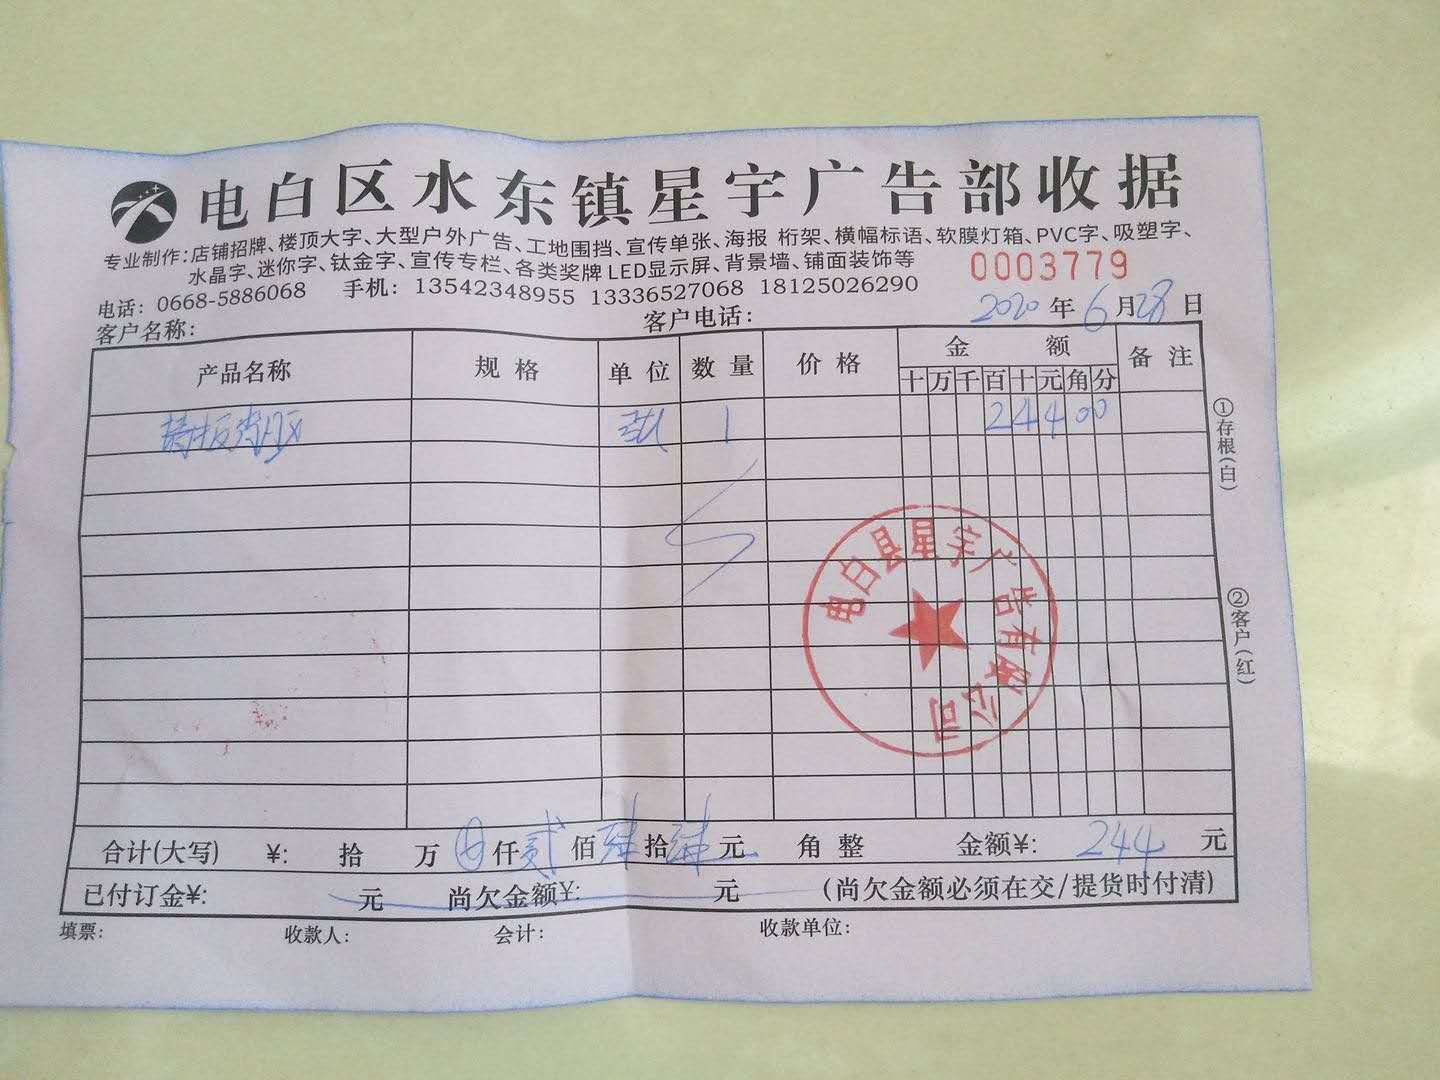 电白区水东镇星宇广告部收据
专业制作:店铺招牌、楼顶大字、大型户外广告、工地围挡、宣传单张、海报 桁架、横幅标语、软膜灯箱、PVC字、吸塑字、
水晶字、迷你字、钛金字、宣传专栏、各类奖牌 LED显示屏、背景墙、铺面装饰等
0003779
电话: 0668-5886068 手机: 13542348955 13336527068 18125026290
2020 年 6 月 28 日
客户名称: 客户电话:
产品名称 规格 单位 数量 价格 金额 备注
十 万 千 百 十 元 角 分
1 24400
①存根(白)
②客户(红)
电白县星宇广告有限公司
合计(大写) ¥: 拾 万 仟 贰 佰 肆 拾 肆 元 角 整 金额¥: 244 元
已付订金¥: 元 尚欠金额¥: 元 (尚欠金额必须在交/提货时付清)
填票: 收款人: 会计: 收款单位: